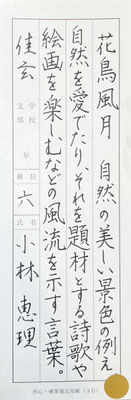 花鳥風月　自然の美しい景色の例え
自然を愛でたり、それを題材とする詩歌や
絵画を楽しむなどの風流を示す言葉。
佳玄 学校 支部 年 級位 六 氏名 小林恵理